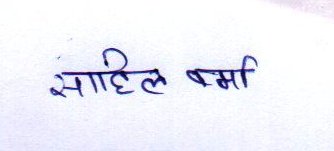 साहिल वर्मा